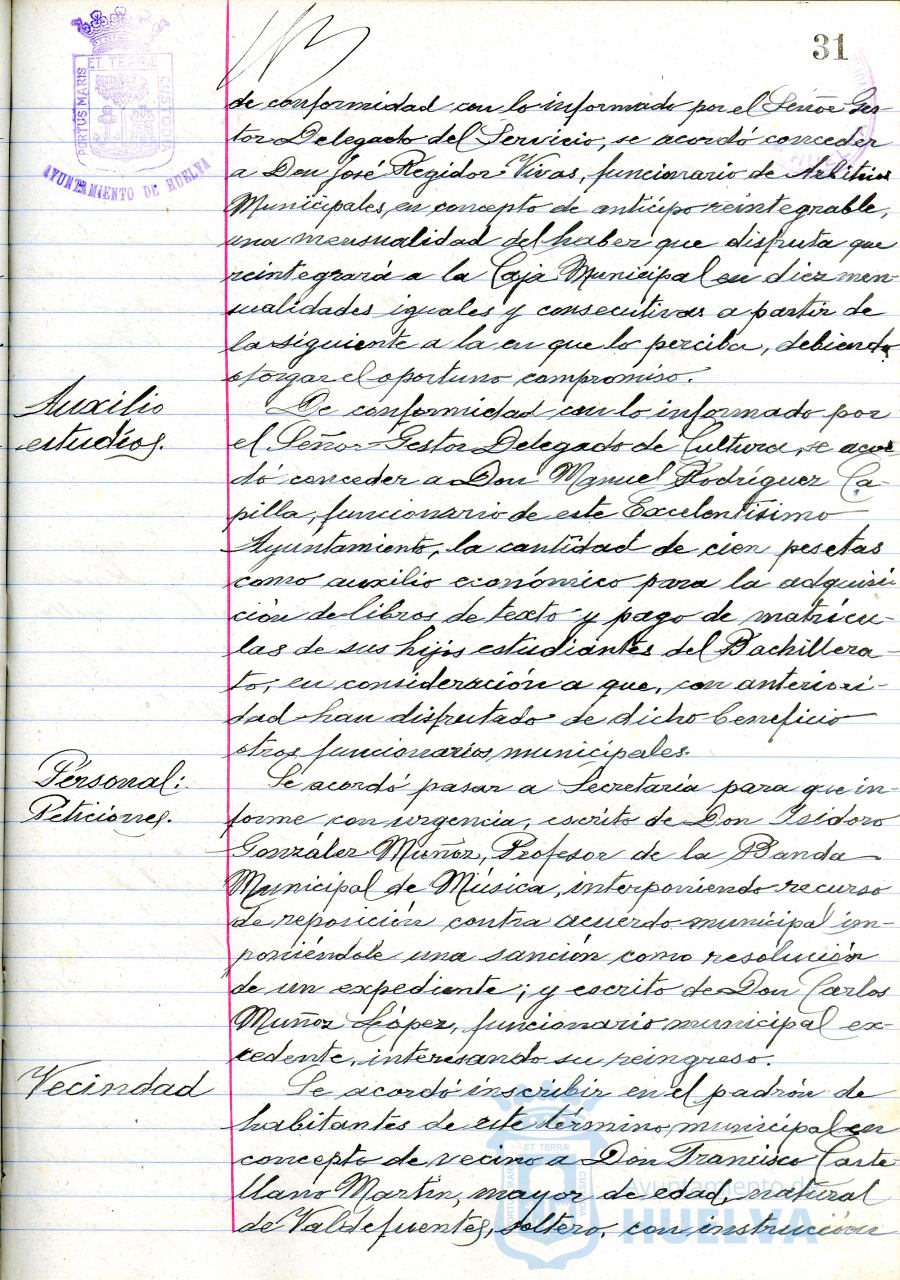 31
PORTUS MARIS ET TERRÆ CUSTODIA
AYUNTAMIENTO DE HUELVA
de conformidad con lo informado por el Señor Ges
tor Delegado del Servicio, se acordó conceder
a Don José Regidor Vivas, funcionario de Arbitrios
Municipales, en concepto de anticipo reintegrable,
una mensualidad del haber que disfruta que
reintegrará a la Caja Municipal en diez men-
sualidades iguales y consecutivas a partir de
la siguiente a la en que lo perciba, debiendo
otorgar el oportuno compromiso.
Auxilio
estudios.
De conformidad con lo informado por
el Señor Gestor Delegado de Cultura, se acor
dó conceder a Don Manuel Rodríguez Ca-
pilla, funcionario de este Excelentísimo
Ayuntamiento, la cantidad de cien pesetas
como auxilio económico para la adquisi
ción de libros de texto y pago de matrícu-
las de sus hijos estudiantes del Bachillera-
to, en consideración a que, con anteriori-
dad han disfrutado de dicho beneficio
otros funcionarios municipales.
Personal:
Peticiones.
Se acordó pasar a Secretaría para que in-
forme con urgencia, escrito de Don Isidoro
González Muñoz, Profesor de la Banda
Municipal de Música, interponiendo recurso
de reposición contra acuerdo municipal im-
poniéndole una sanción como resolución
de un expediente; y escrito de Don Carlos
Muñoz López, funcionario municipal ex-
cedente, interesando su reingreso.
Vecindad
Se acordó inscribir en el padrón de
habitantes de este término municipal en
concepto de vecino a Don Francisco Caste-
llano Martín, mayor de edad, natural
de Valdefuentes, soltero, con instrucción
ET TERRÆ
Ayuntamiento de
HUELVA